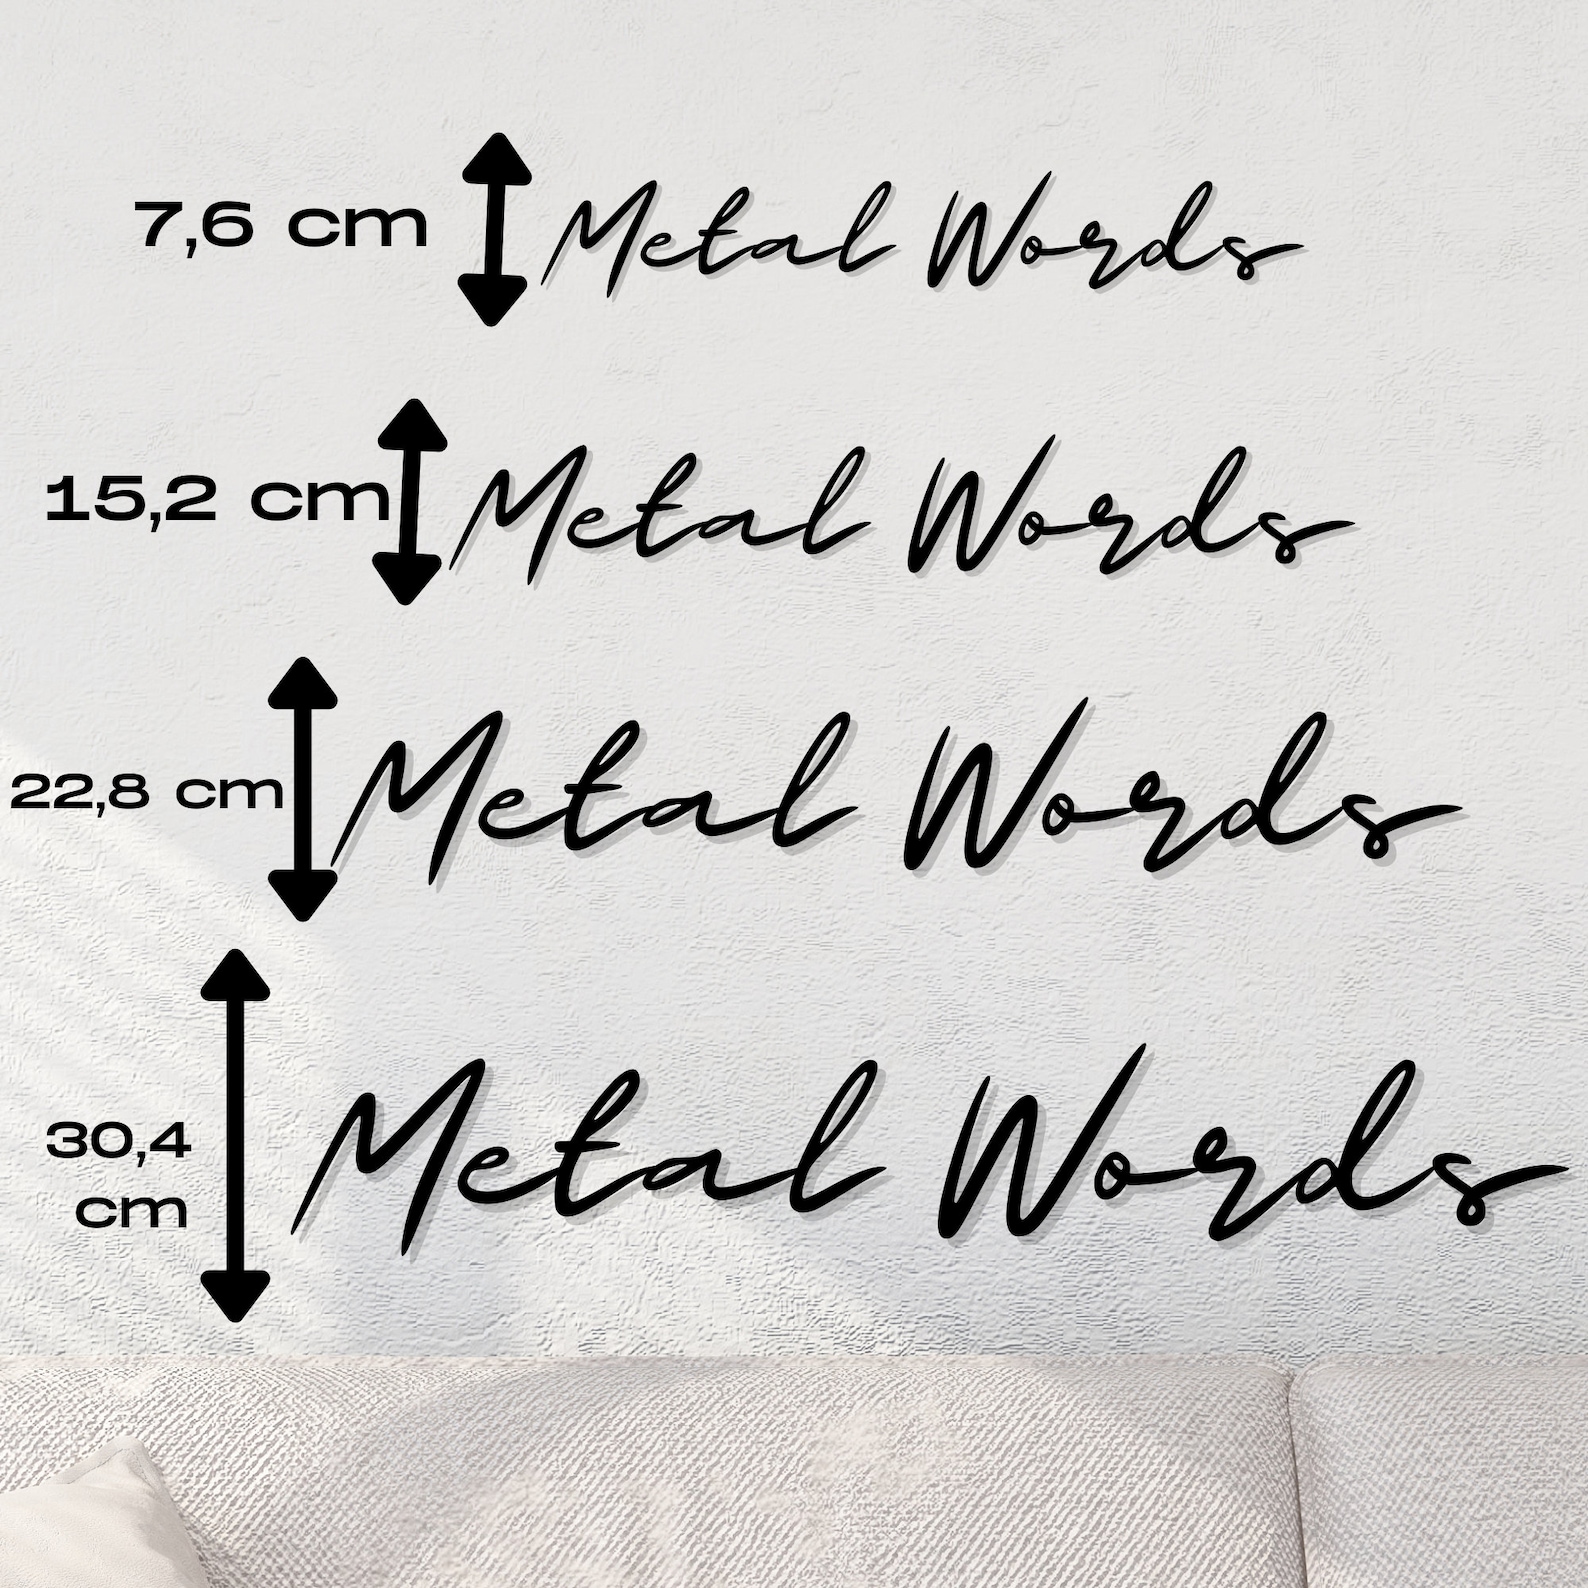 7,6 cm
Metal Words
15,2 cm
Metal Words
22,8 cm
Metal Words
30,4
cm
Metal Words